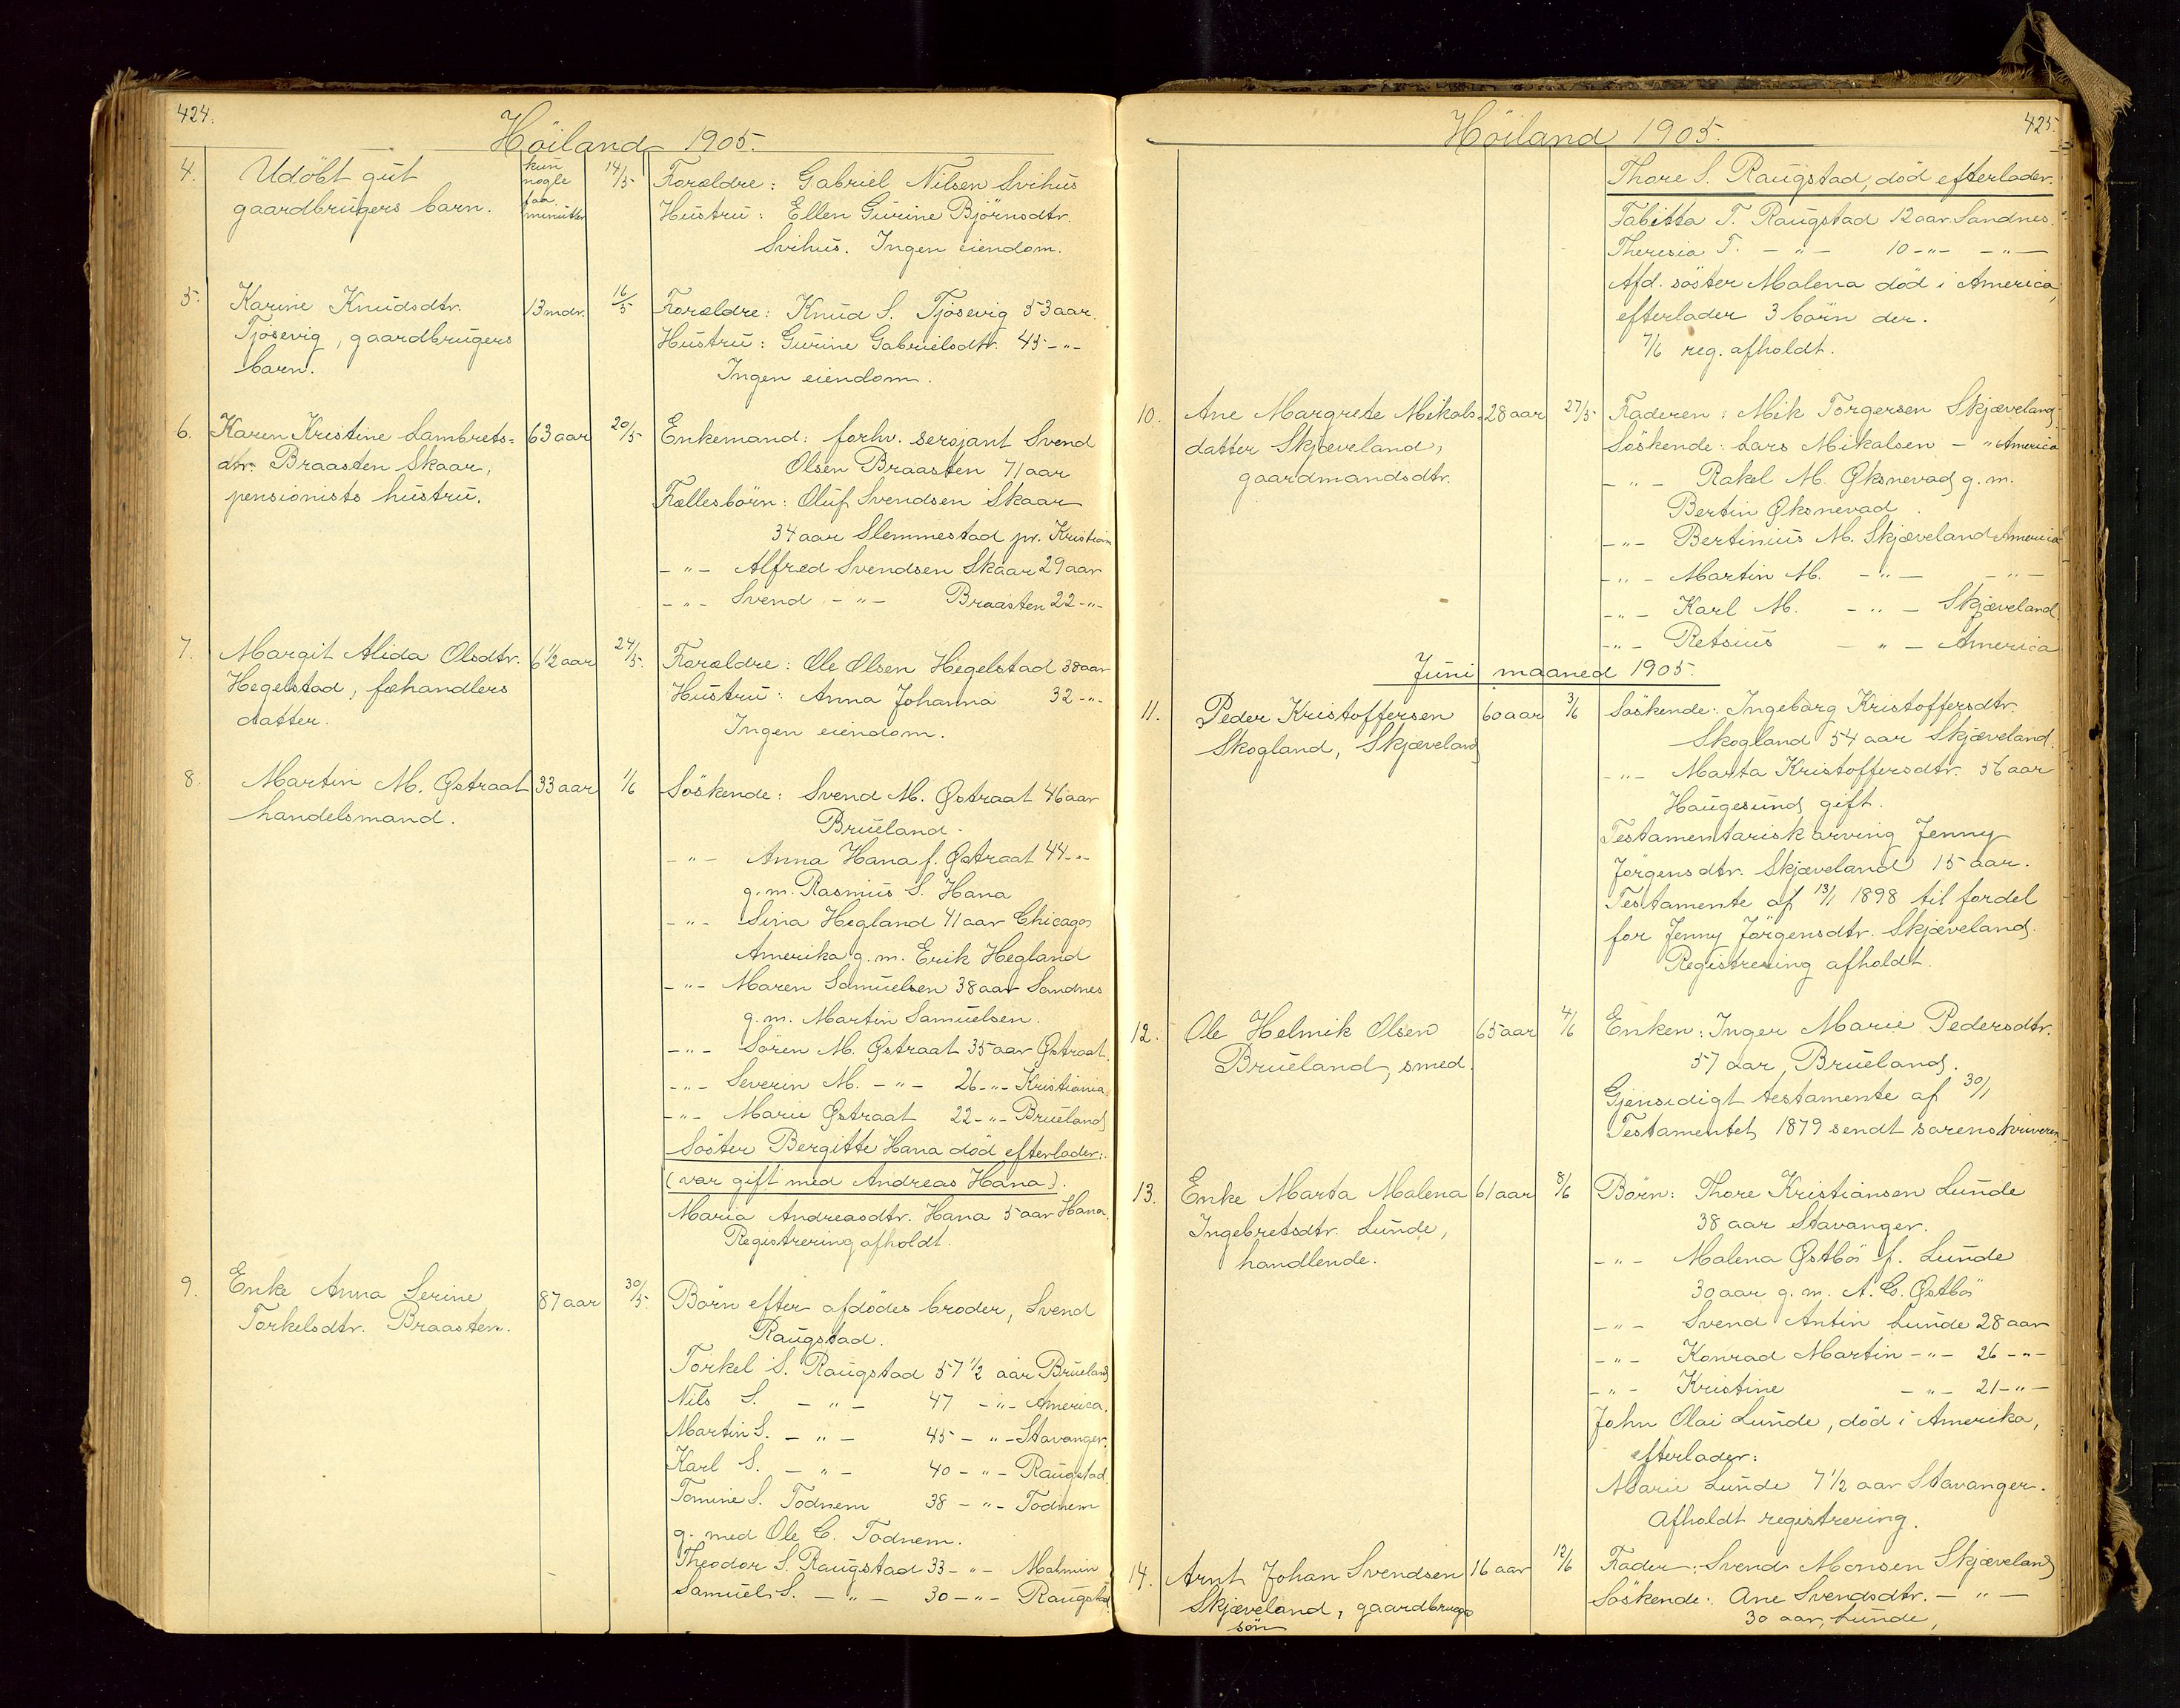 424.
Höiland 1905.
4. Udöbt gut kun nogle faa minutter 14/5 Forældre: Gabriel Nilsen Svihus
gaardbrugers barn. Hustru: Ellen Gurine Björnsdtr.
Svihus. Ingen eiendom.
5. Karine Knudsdtr. 13 mdr. 16/5 Forældre: Knud S. Tjösevig 53 aar.
Tjösevig, gaardbrugers Hustru: Gurine Gabrielsdtr. 45 -"-
barn. Ingen eiendom.
6. Karen Kristine Lambrets= 63 aar 20/5 Enkemand: forhv. sersjant Svend
dtr. Braasten Skaar, Olsen Braasten 71 aar
pensionists hustru. Fællesbörn: Oluf Svendsen Skaar
34 aar Slemmestad pr. Kristiania
-"- Alfred Svendsen Skaar 29 aar
-"- Svend -"- Braasten 22 -"-
7. Margit Alida Olsdtr. 6 1/2 aar 24/5. Forældre: Ole Olsen Hegelstad 38 aar
Hegelstad, fæhandlers Hustru: Anna Johanna 32 -"-
datter. Ingen eiendom.
8. Martin M. Østraat 33 aar 1/6 Söskende: Svend M. Østraat 46 aar
handelsmand. Brueland.
-"- Anna Hana f. Østraat 44 -"-
g. m. Rasmus S. Hana
-"- Sina Hegland 41 aar Chicago
Amerika g. m. Erik Hegland
-"- Maren Samuelsen 38 aar Sandnes
g. m. Martin Samuelsen.
-"- Sören M. Østraat 35 aar Østraat.
-"- Severin M. -"- 26 -"- Kristiania.
-"- Marie Østraat 22 -"- Brueland
Söster Bergitte Hana död efterlader:
(var gift med Andreas Hana).
Maria Andreasdtr. Hana 5 aar Hana.
Registrering afholdt.
9. Enke Anna Serine 87 aar 30/5. Börn efter afdödes broder, Svend
Torkelsdtr. Braasten. Raugstad.
Torkel S. Raugstad 57 1/2 aar Brueland
Nils S. -"- 47 -"- America.
Martin S. -"- 45 -"- Stavanger.
Karl S. -"- 40 -"- Raugstad.
Tomine S. Todnem 38 -"- Todnem
g. med Ole C. Todnem.
Theodor S. Raugstad 33 -"- Malmin
Samuel S. -"- 30 -"- Raugstad.
425.
Höiland 1905.
Thore S. Raugstad, död efterlader.
Tabitta T. Raugstad 12 aar Sandnes.
Theresia T. -"- 10 -"- -"-
Afd. söster Malena död i America,
efterlader 3 börn der.
7/6 reg. afholdt.
10. Ane Margrete Mikals= 28 aar 27/5 Faderen: Mik Torgersen Skjæveland
datter Skjæveland, Söskende: Lars Mikalsen -"- America
gaardmandsdtr. -"- Rakel M. Øksnevad g. m.
Bertin Øksnevad.
-"- Bertinius M. Skjæveland America
-"- Martin M. -"- -"-
-"- Karl M. -"- Skjæveland
-"- Retsius -"- America
Juni maaned 1905.
11. Peder Kristoffersen 60 aar 3/6 Söskende: Ingebarg Kristoffersdtr.
Skogland, Skjæveland Skogland 54 aar Skjæveland.
-"- Marta Kristoffersdtr. 56 aar
Haugesund gift.
Testamentarisk arving Jenny
Jörgensdtr. Skjæveland 15 aar.
Testamente af 13/1 1898 til fordel
for Jenny Jörgensdtr. Skjæveland.
Registrering afholdt.
12. Ole Helmik Olsen 65 aar 4/6 Enken: Inger Marie Pedersdtr.
Brueland, smed. 57 aar, Brueland.
Gjensidigt testamente af 30/1
Testamentet 1879 sendt sorenskriveren.
13. Enke Marta Malena 61 aar 8/6 Börn: Thore Kristiansen Lunde
Ingebretsdtr. Lunde, 38 aar Stavanger.
handlende. -"- Malena Østbö f. Lunde
30 aar g. m. A. G. Østbö
-"- Svend Antin Lunde 28 aar
-"- Konrad Martin -"- 26 -"-
-"- Kristine -"- 21 -"-
John Olai Lunde, död i Amerika,
efterlader:
Marie Lunde 7 1/2 aar Stavanger.
Afholdt registrering.
14. Arnt Johan Svendsen 16 aar 12/6 Fader: Svend Monsen Skjæveland
Skjæveland, gaardbrugs Söskende: Ane Svendsdtr. -"-
sön 30 aar, Lunde,